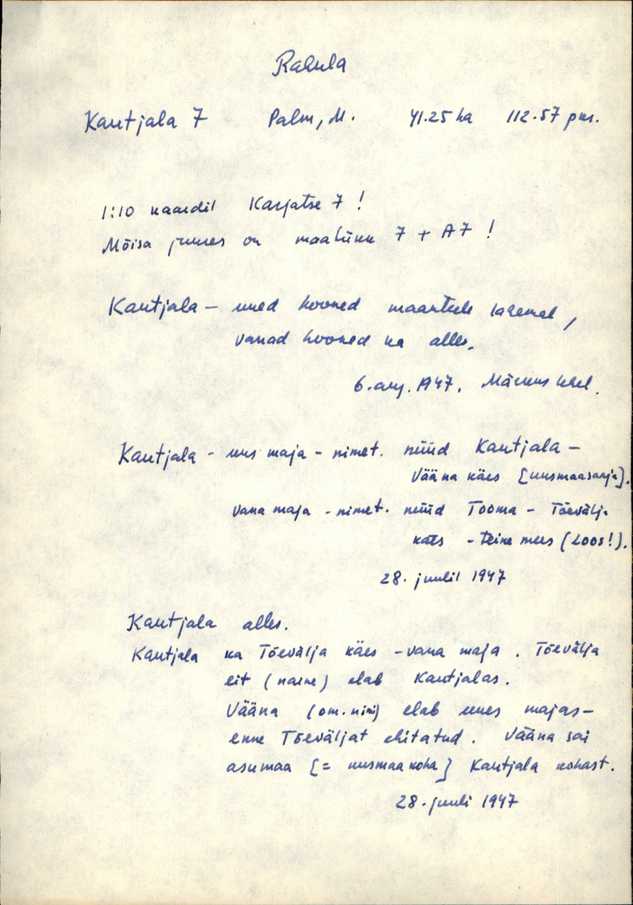 Rahula
Kautjala 7 Palm, M. 41.25 ha 112.57 pus.
1:10 kaardil Karjatse 7!
Mõisa juures on maatükk 7 + A7!
Kautjala – uued hooned maanteele lähemal,
vanad hooned ka alles.
6. aug. 1947.
Kautjala - uus maja - nimet. nüüd Kautjala –
Vääna käes [uusmaasaaja].
vana maja - nimet. nüüd Tooma – Tõevälja
käes - teine mees (Loos!).
28. juulil 1947
Kautjala alles.
Kautjala ka Tõevälja käes – vana maja. Tõevälja
eit (naine) elab Kautjalas.
Vääna (om. nimi) elab uues majas –
enne Tõeväljat ehitatud. Vääna sai
asumaa [= uusmaa koha] Kautjala kohast.
28. juuli 1947